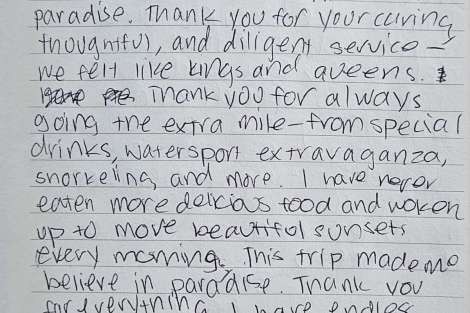 paradise. Thank you for your caring
thoughtful, and diligent service —
we felt like kings and queens.
Thank you for always
going the extra mile - from special
drinks, watersport extravaganza,
snorkeling and more. I have never
eaten more delicious food and woken
up to move beautiful sunsets
every morning. This trip made me
believe in paradise. Thank you
for everything I have endles